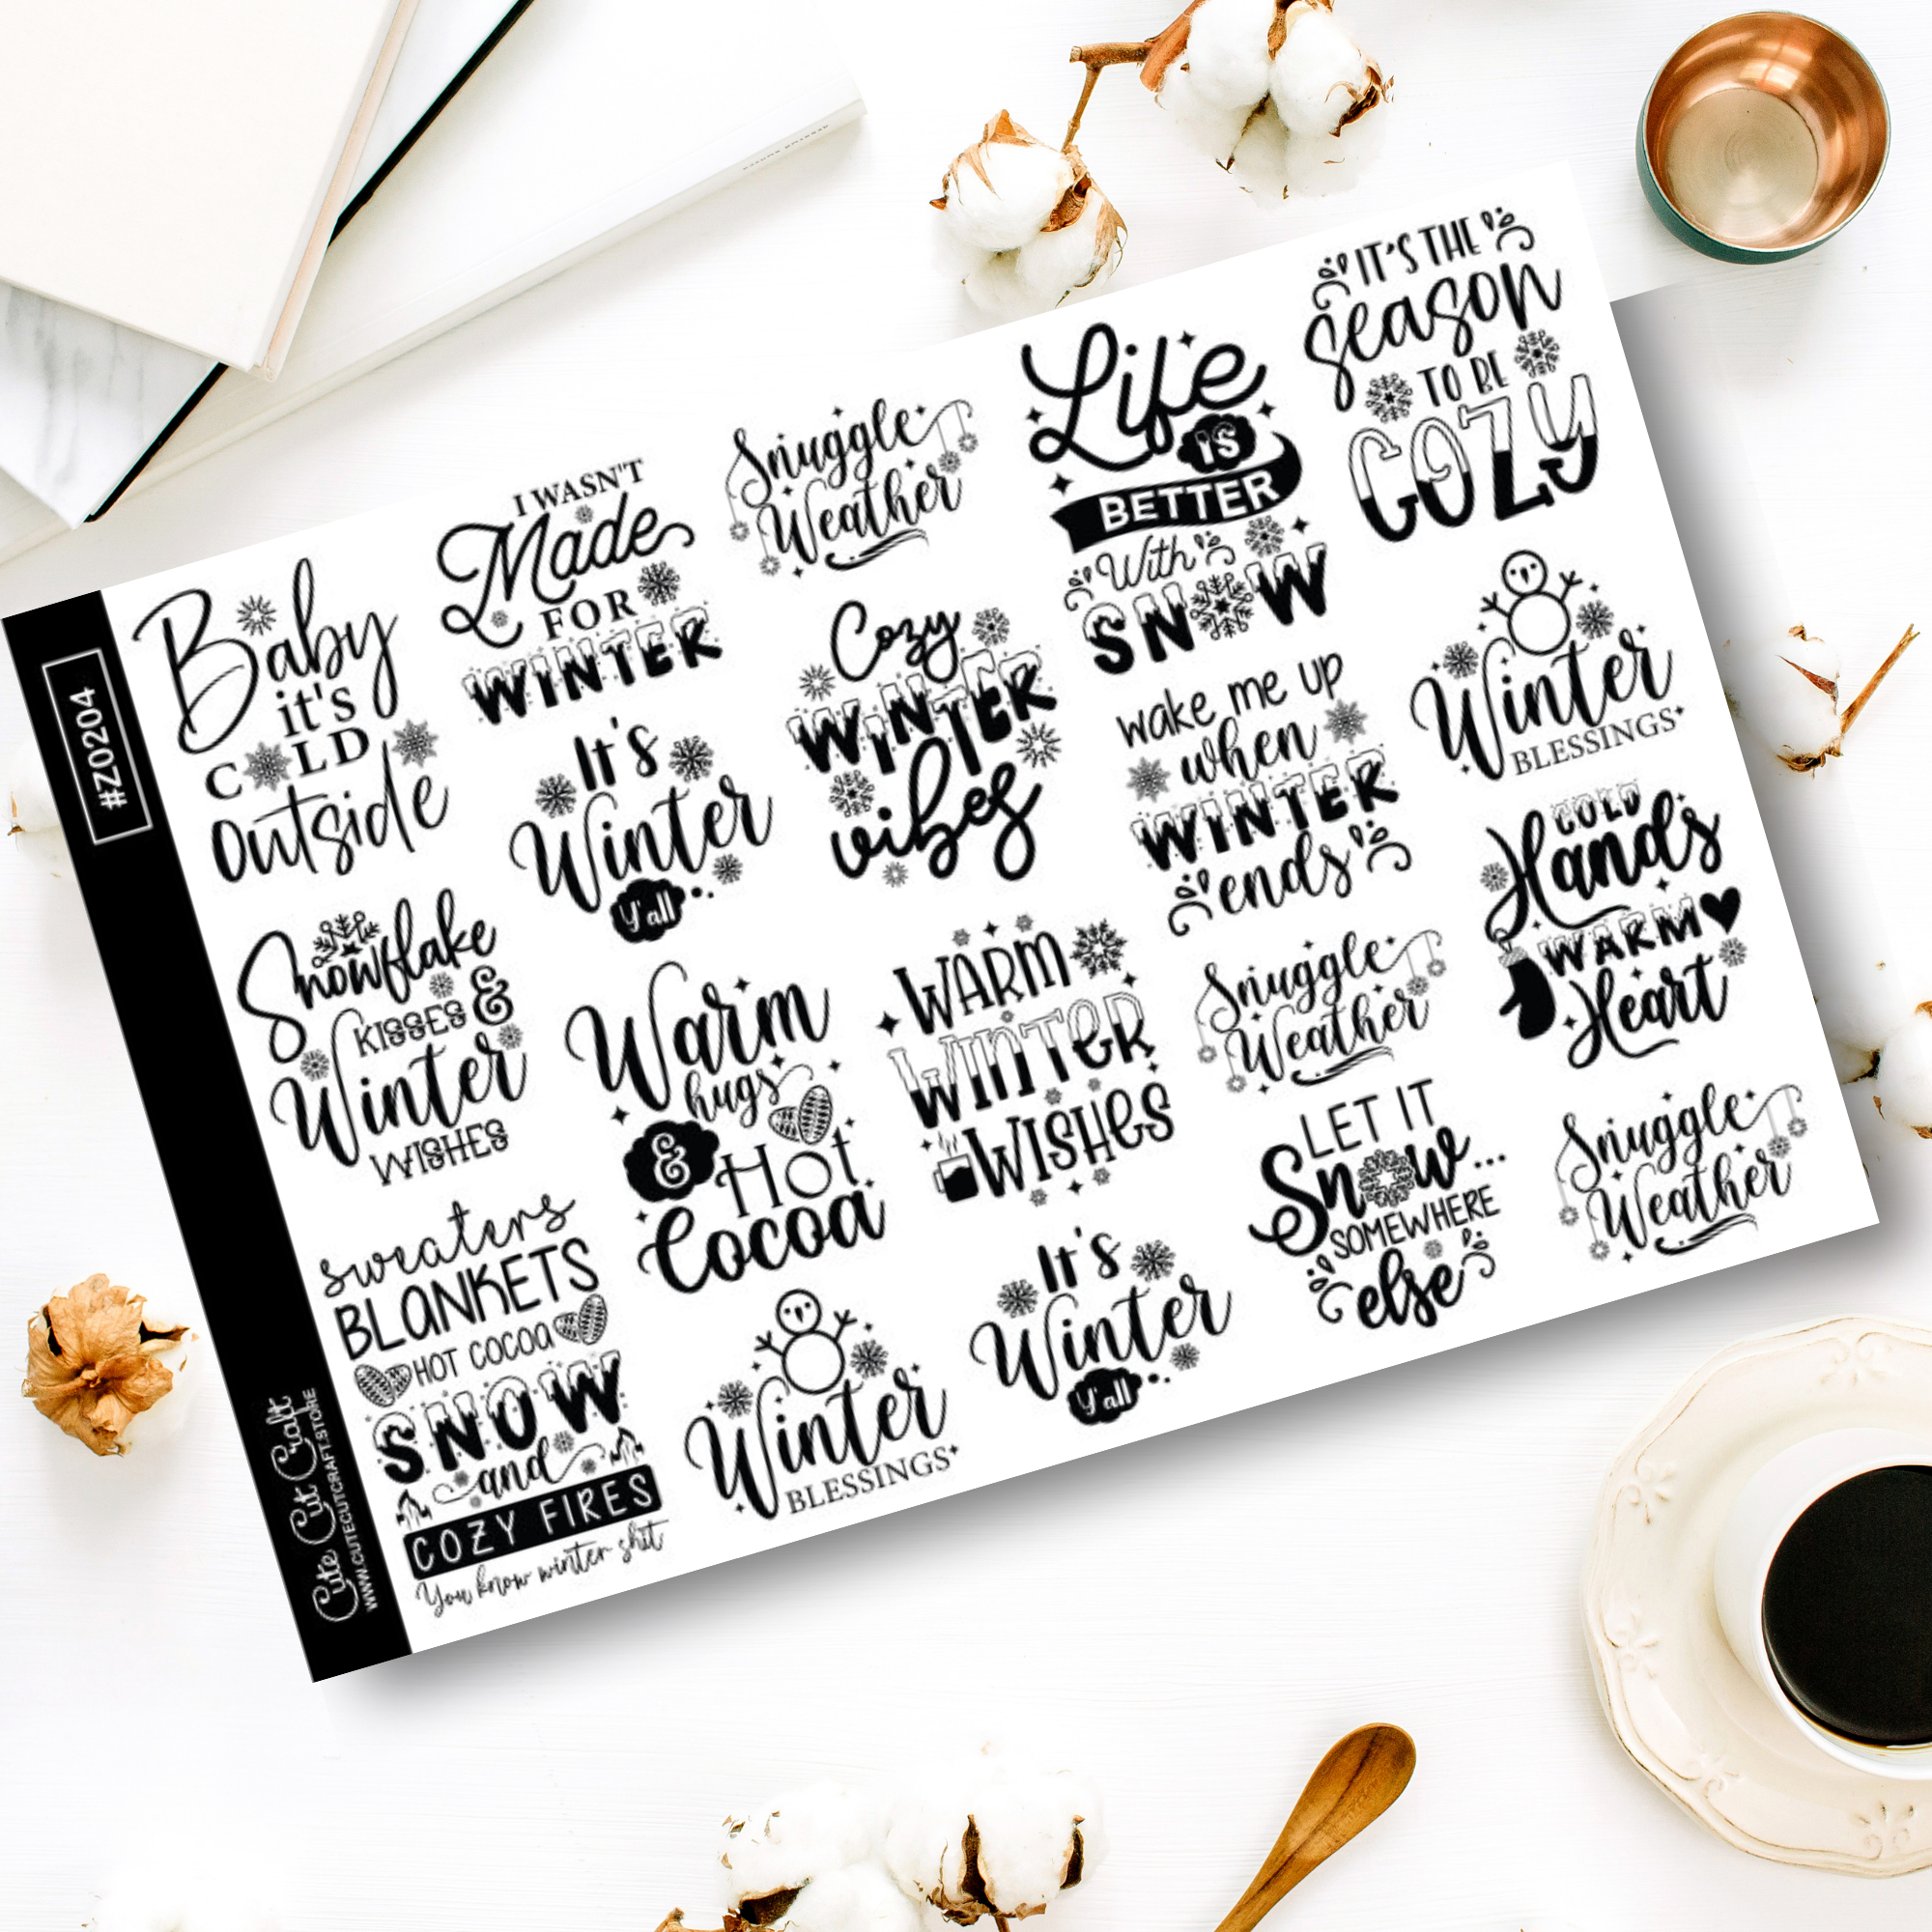 #Z0204
Cute Cut Craft
WWW.CUTECUTCRAFT.STORE
Baby
it's
COLD
outside
I WASN'T
Made
FOR
WINTER
Snuggle
Weather
Life
IS
BETTER
With
SNOW
IT'S THE
season
TO BE
COZY
Snowflake
KISSES &
Winter
WISHES
It's
Winter
Y'all
Cozy
WINTER
vibes
wake me up
when
WINTER
ends
Winter
BLESSINGS
sweaters
BLANKETS
HOT COCOA
SNOW
and
COZY FIRES
You know winter shit
Warm
hugs
& Hot
Cocoa
WARM
WINTER
WISHES
Snuggle
Weather
COLD
Hands
WARM
Heart
Winter
BLESSINGS
It's
Winter
Y'all
LET IT
Snow...
SOMEWHERE
else
Snuggle
Weather